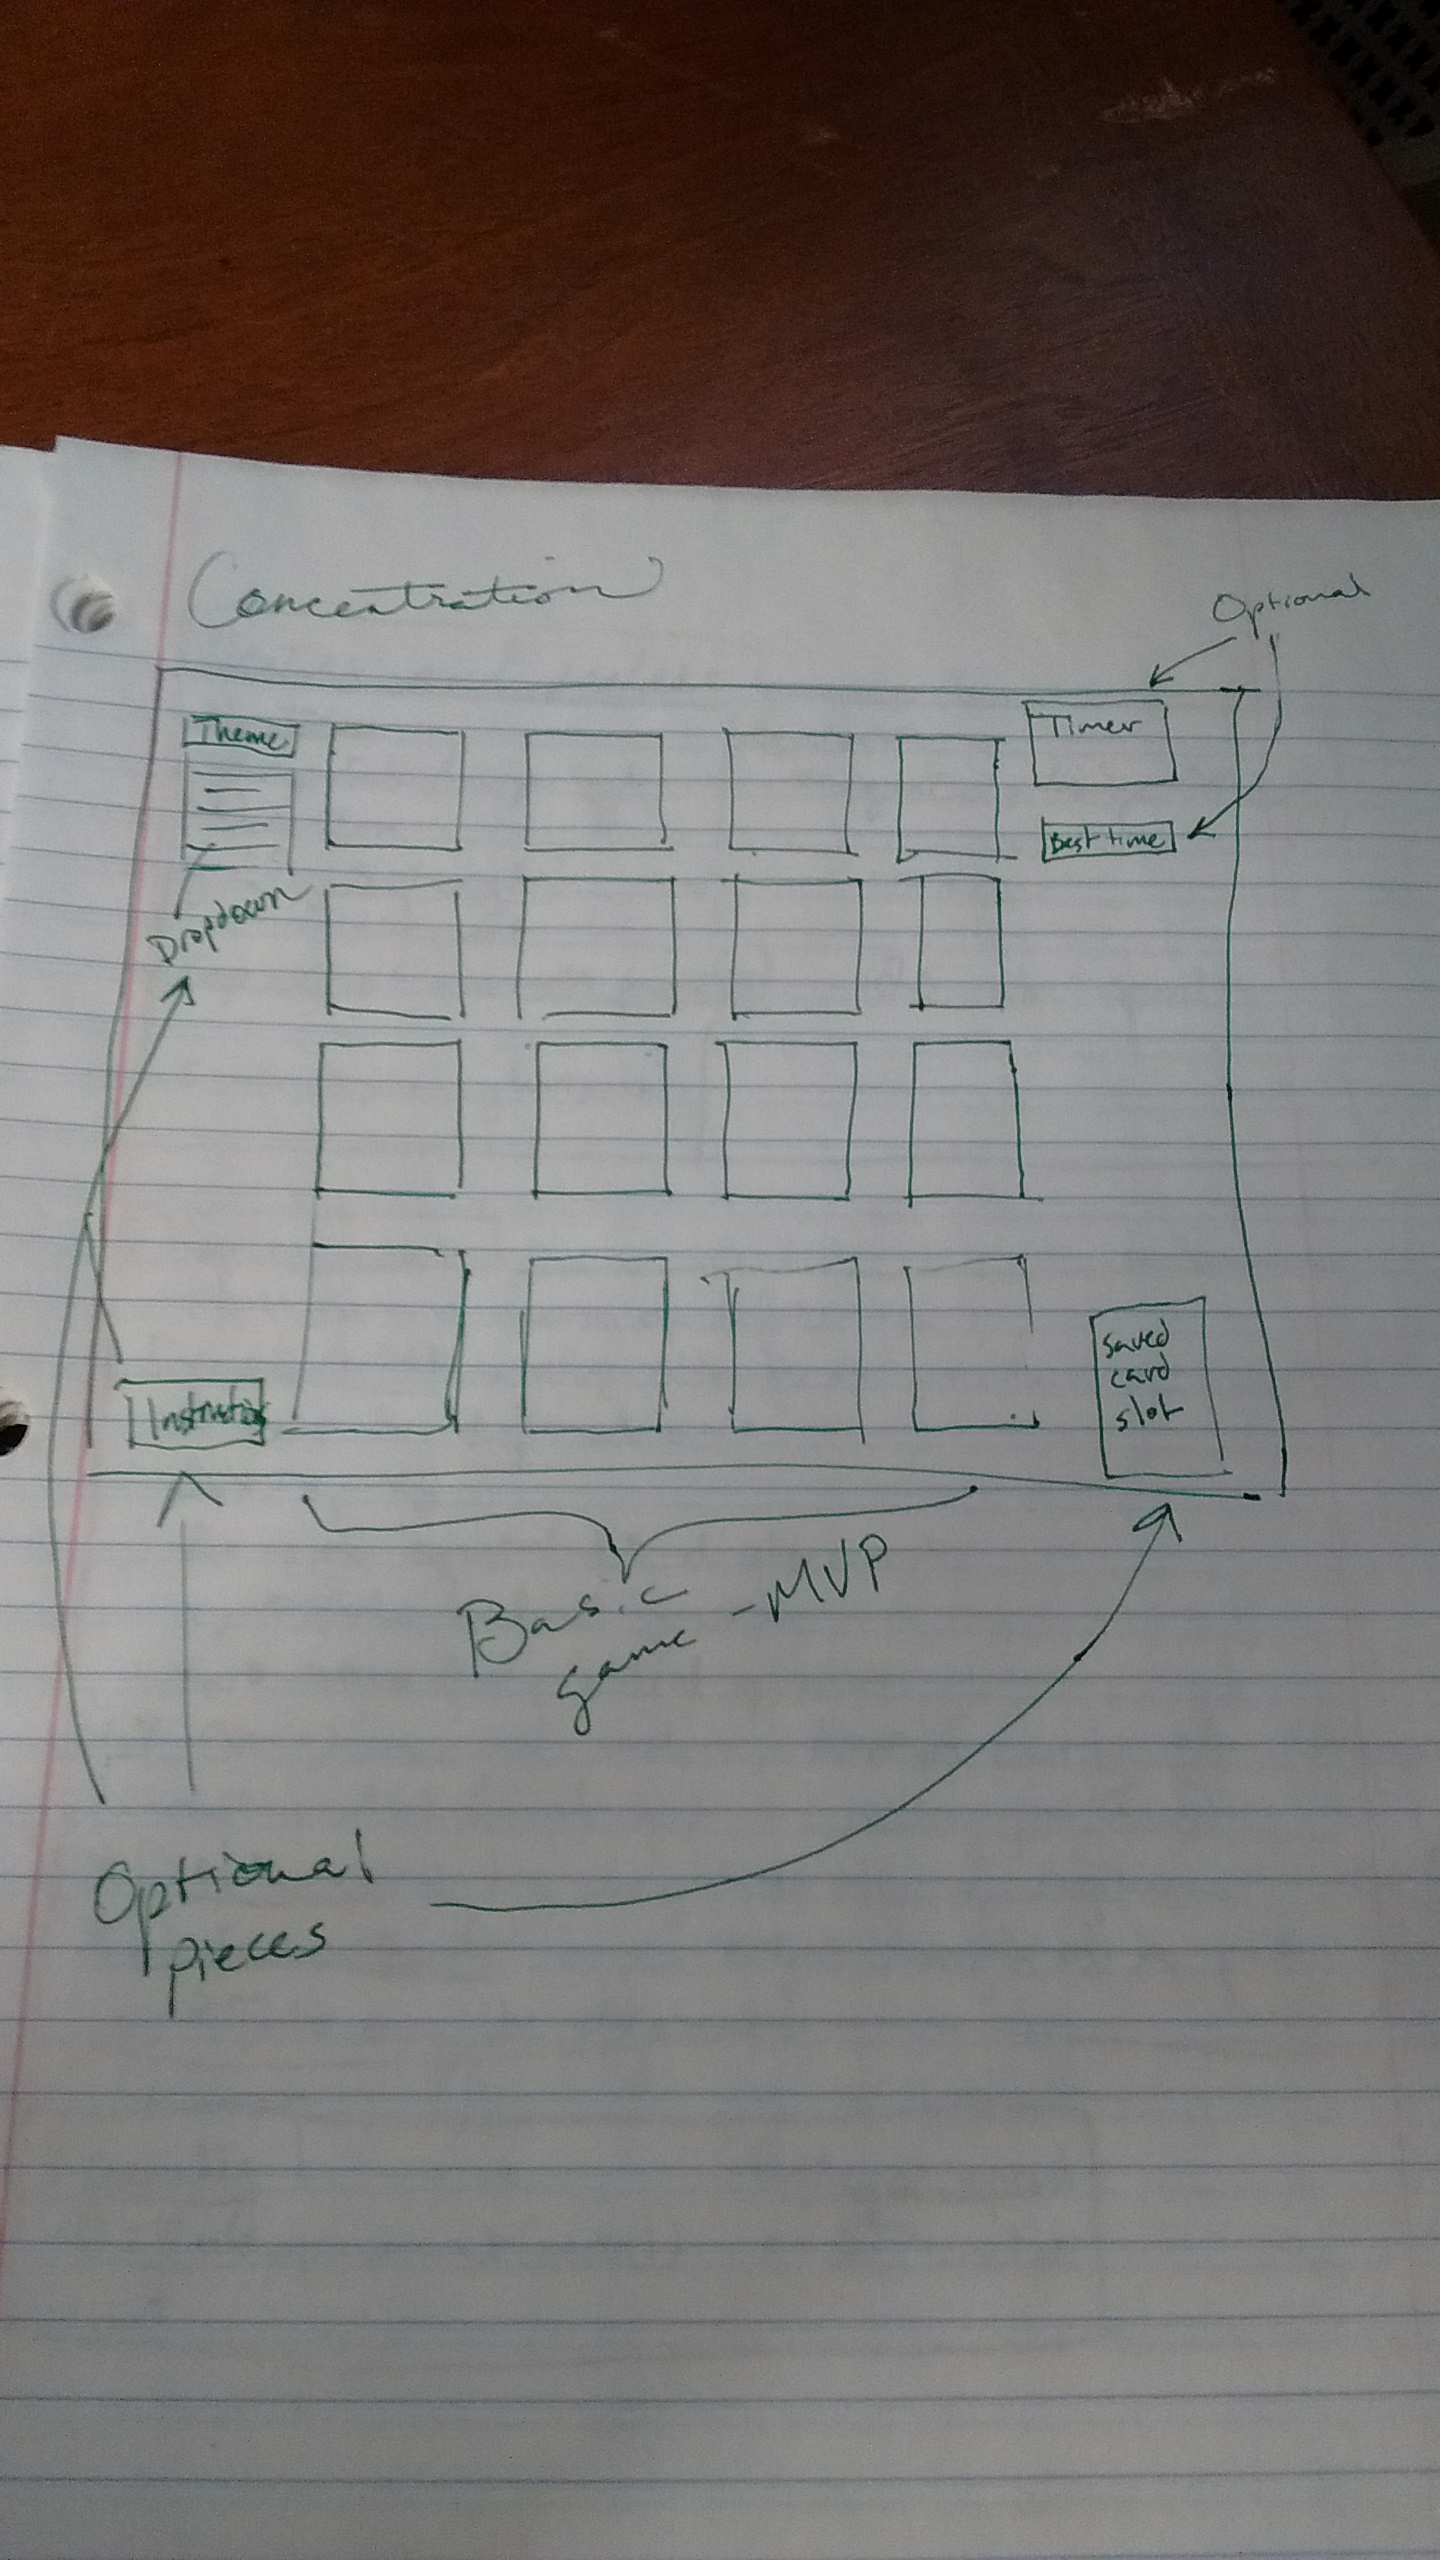 Concentration
Optional
Theme
Timer
Best time
Dropdown
saved
card
slot
Basic
game - MVP
Optional
pieces